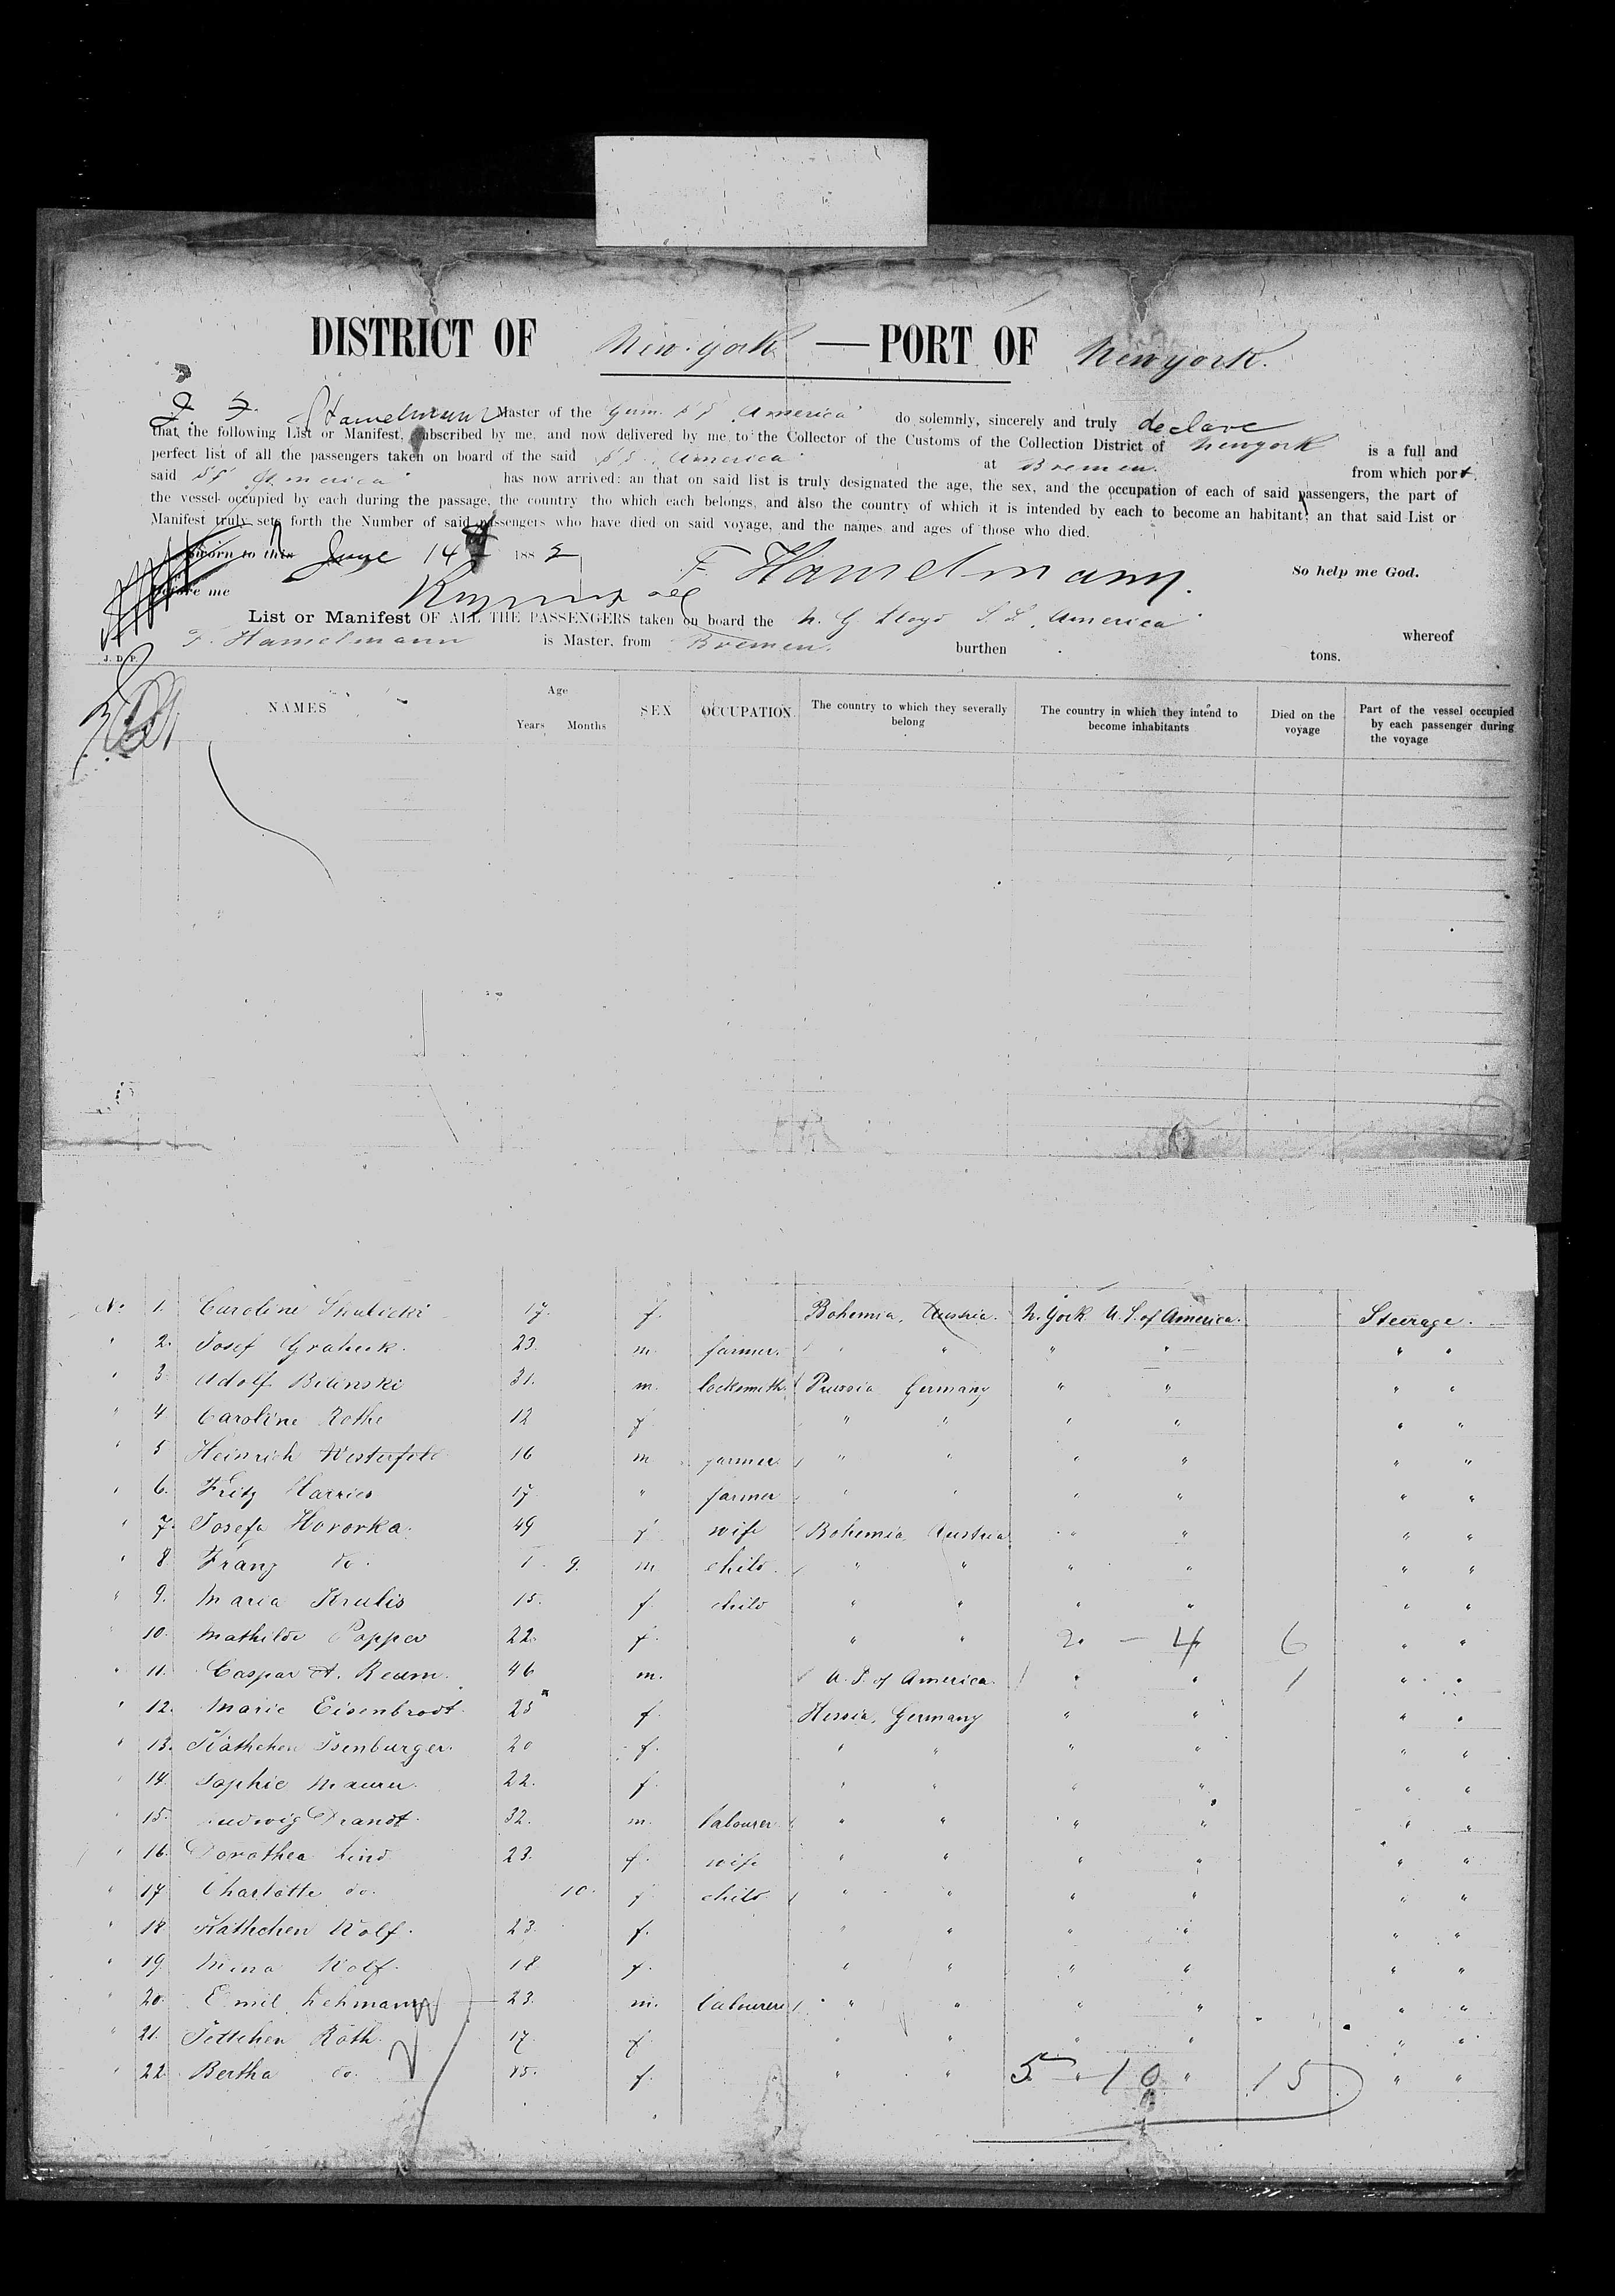 DISTRICT OF New-york — PORT OF New york.
I F. Hamelmann Master of the Germ. S S "America" do solemnly, sincerely and truly declare
that the following List or Manifest, subscribed by me, and now delivered by me to the Collector of the Customs of the Collection District of Newyork is a full and
perfect list of all the passengers taken on board of the said S S "America" at Bremen. from which port
said S S "America" has now arrived: an that on said list is truly designated the age, the sex, and the occupation of each of said passengers, the part of
the vessel occupied by each during the passage, the country tho which each belongs, and also the country of which it is intended by each to become an habitant; an that said List or
Manifest truly sets forth the Number of said passengers who have died on said voyage, and the names and ages of those who died.
Sworn to this June 14th 1882 F Hamelmann. So help me God.
before me
List or Manifest OF ALL THE PASSENGERS taken on board the N. G. Lloyd S. S. "America" whereof
F. Hamelmann is Master, from Bremen. burthen tons.
J. D. P.
NAMES Age Years Months SEX OCCUPATION The country to which they severally belong The country in which they intend to become inhabitants Died on the voyage Part of the vessel occupied by each passenger during the voyage
No. 1. Caroline Skulicki 17. f. Bohemia, Austria. N. York U. S. of America. Steerage.
" 2. Josef Grabeck. 23. m. farmer. " " " " " "
" 3. Adolf Bilinski 31. m. locksmith Prussia Germany " " " "
" 4 Caroline Rothe 12 f " " " " " "
" 5 Heinrich Westerfeld 16 m farmer " " " " " "
" 6. Fritz Harries 17 " farmer " " " " " "
" 7. Josefa Hovorka. 49 f wife Bohemia Austria " " " "
" 8 Franz do. 1 9. m child. " " " " " "
" 9. Maria Krulis 15. f. child " " " " " "
" 10. Mathilde Popper 22. f. " " 2. - 4 6 " "
" 11. Caspar A. Reum. 46 m. U. S. of America. " " 1 " "
" 12. Marie Eisenbrodt. 25 f. Hessia, Germany " " " "
" 13. Käthchen Isenburger. 20 f. " " " " " "
" 14. Sophie Maurer. 22. f. " " " " " "
" 15. Ludwig Brandt. 32. m. labourer " " " " " "
" 16. Dorothea Lind 23. f. wife " " " " " "
" 17. Charlotte do. 10. f child " " " " " "
" 18. Käthchen Wolf. 23. f. " " " " " "
" 19. Mina Wolf. 18 f. " " " " " "
" 20. Emil Lehmann 23. m. labourer " " " " " "
" 21. Jettchen Roth. 17. f. " " " " " "
" 22. Bertha do. 15. f. " " 5 " 10 " 15 " "